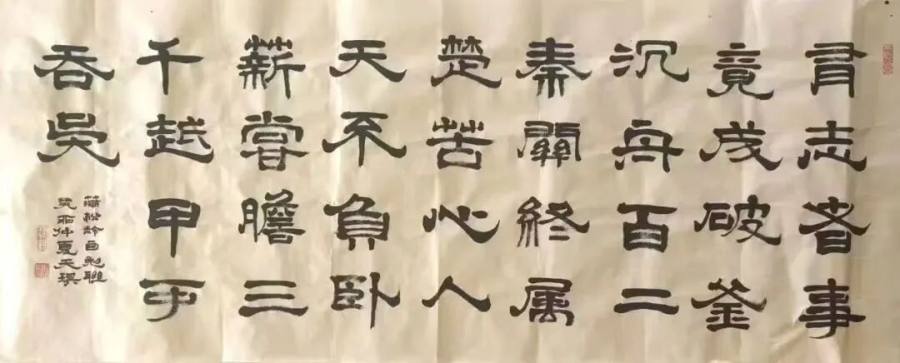 有志者事
竟成破釜
沉舟百二
秦關終属
楚苦心人
天不負卧
薪嘗膽三
千越甲可
吞吳
蒲松龄自勉聯
仲夏